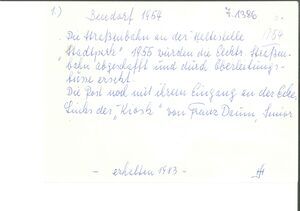 1.) Bendorf 1954 7.1386
. Die Straßenbahn an der Haltestelle 1954
"Stadtpark" 1955 wurden die Elektr. Straßen-
bahn abgeschafft und durch Oberleitungs-
busse ersetzt.
Die Post noch mit ihrem Eingang an der Ecke.
Links der "Kiosk" von Franz Daum, Senior
- erhalten 1983 -